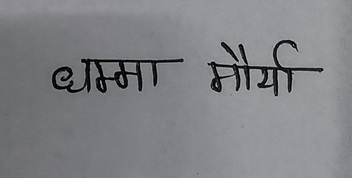 धम्मा मौर्या